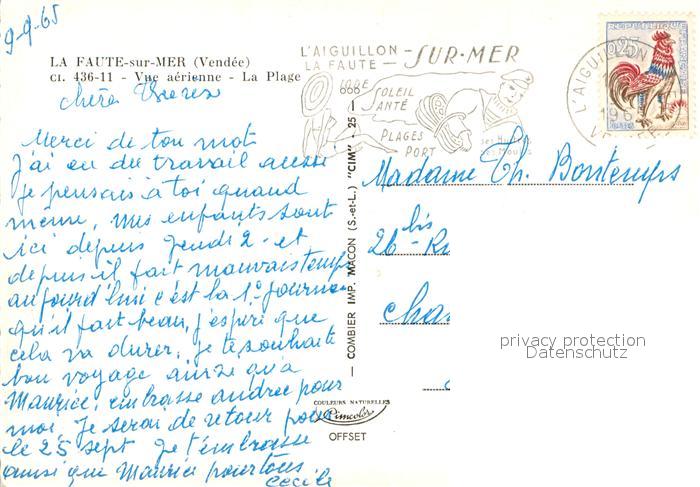 9-9-65
LA FAUTE-sur-MER (Vendée)
CI. 436-11 - Vue aérienne - La Plage
L'AIGUILLON - SUR-MER
LA FAUTE -
IODE
SOLEIL
SANTÉ
PLAGES
PORT
L'AIGUILLON
VENDÉE
chère
Merci de ton mot
j'ai eu du travail aussi
je pensais à toi quand
même, mes enfants sont
ici depuis jeudi 2 - et
depuis il fait mauvais temps
aujourd'hui c'est la 1e journée
qu'il fait beau, j'espère que
cela va durer, je te souhaite
bon voyage ainsi qu'à
Maurice, embrasse andrée pour
moi. Je serai de retour pour
le 25 sept je t'embrasse
ainsi que Maurice pour tous
Cecile
— COMBIER IMP. MACON (S.-et-L.) "CIM" - 25 -
COULEURS NATURELLES
Cimcolor
OFFSET
Madame Th. Bontemps
26 bis - Ru
cha
privacy protection
Datenschutz